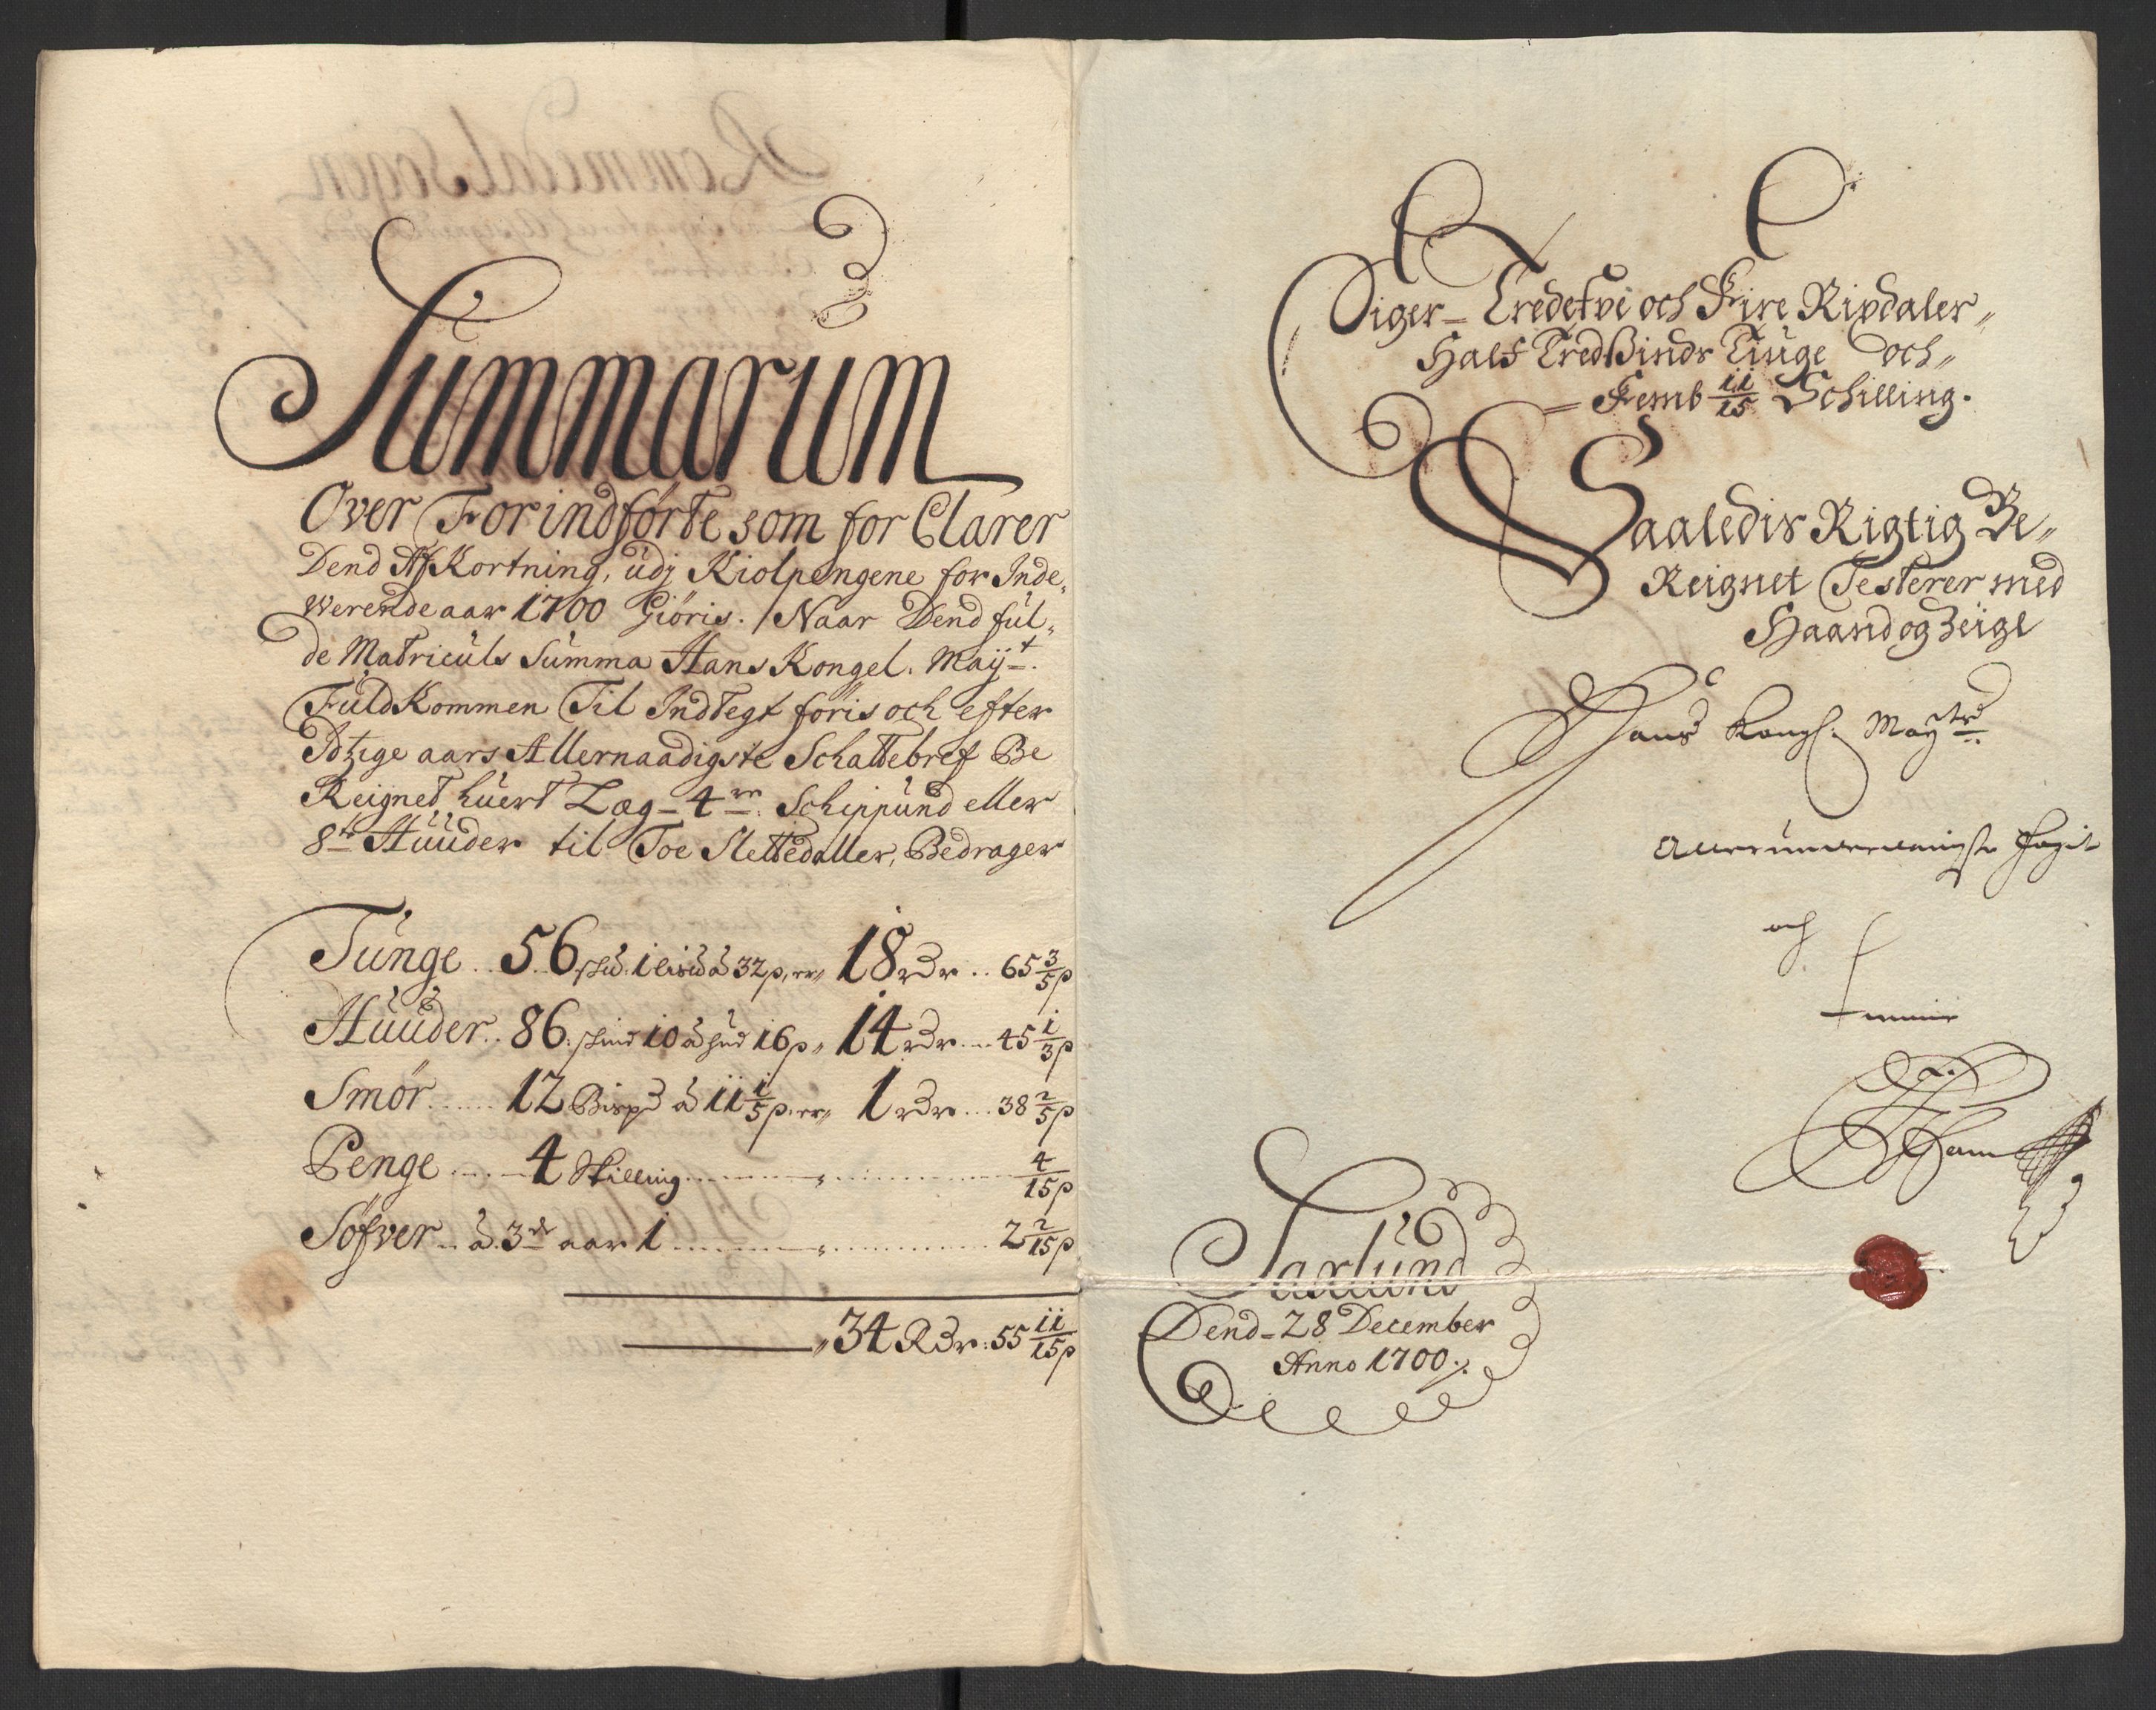 Summarum
Over Forindførte som for Clarer
Dend Af Kortning, udj Kiolpengene for Inde,
Werende aar 1700 Giøris. / Naar Dend ful,
de Matriculs Summa Hans Kongel. Mayt.
Fuldkommen Til Indtegt føris och efter
Itzige aars Allernaadigste Schattebref Be
Reignet huert Læg - 4re. Schippund eller
8te Huuder til Toe Slettedaller, Bedrager
Tunge .. 56 1 à 32 p. er 18 rdr .. 65 3/5 p
Huuder .. 86. 10 à hud 16 p " 14 rdr ... 45 1/3 p
Smør ..... 12 Bispd à 11 1/5 p. er 1 rdr ... 38 2/5 p
Penge ..... 4 Skilling ..... " ..... 4/15 p
Søfver .. à 3de aar 1 ..... " ..... 2 2/15 p
" 34 Rdr : 55 11/15 p
Siger - Tredefvi och Fire Rixdaler "
Half Tredsinds Tiuge och "
= Femb 11/15 Schilling.
Saaledis Rigtig Be"
Reignet Testerer med
Haand og Zeigl
Hans Kongl. Maytz
fogit
och
Saxlund
Dend - 28 December
Anno 1700 ./.